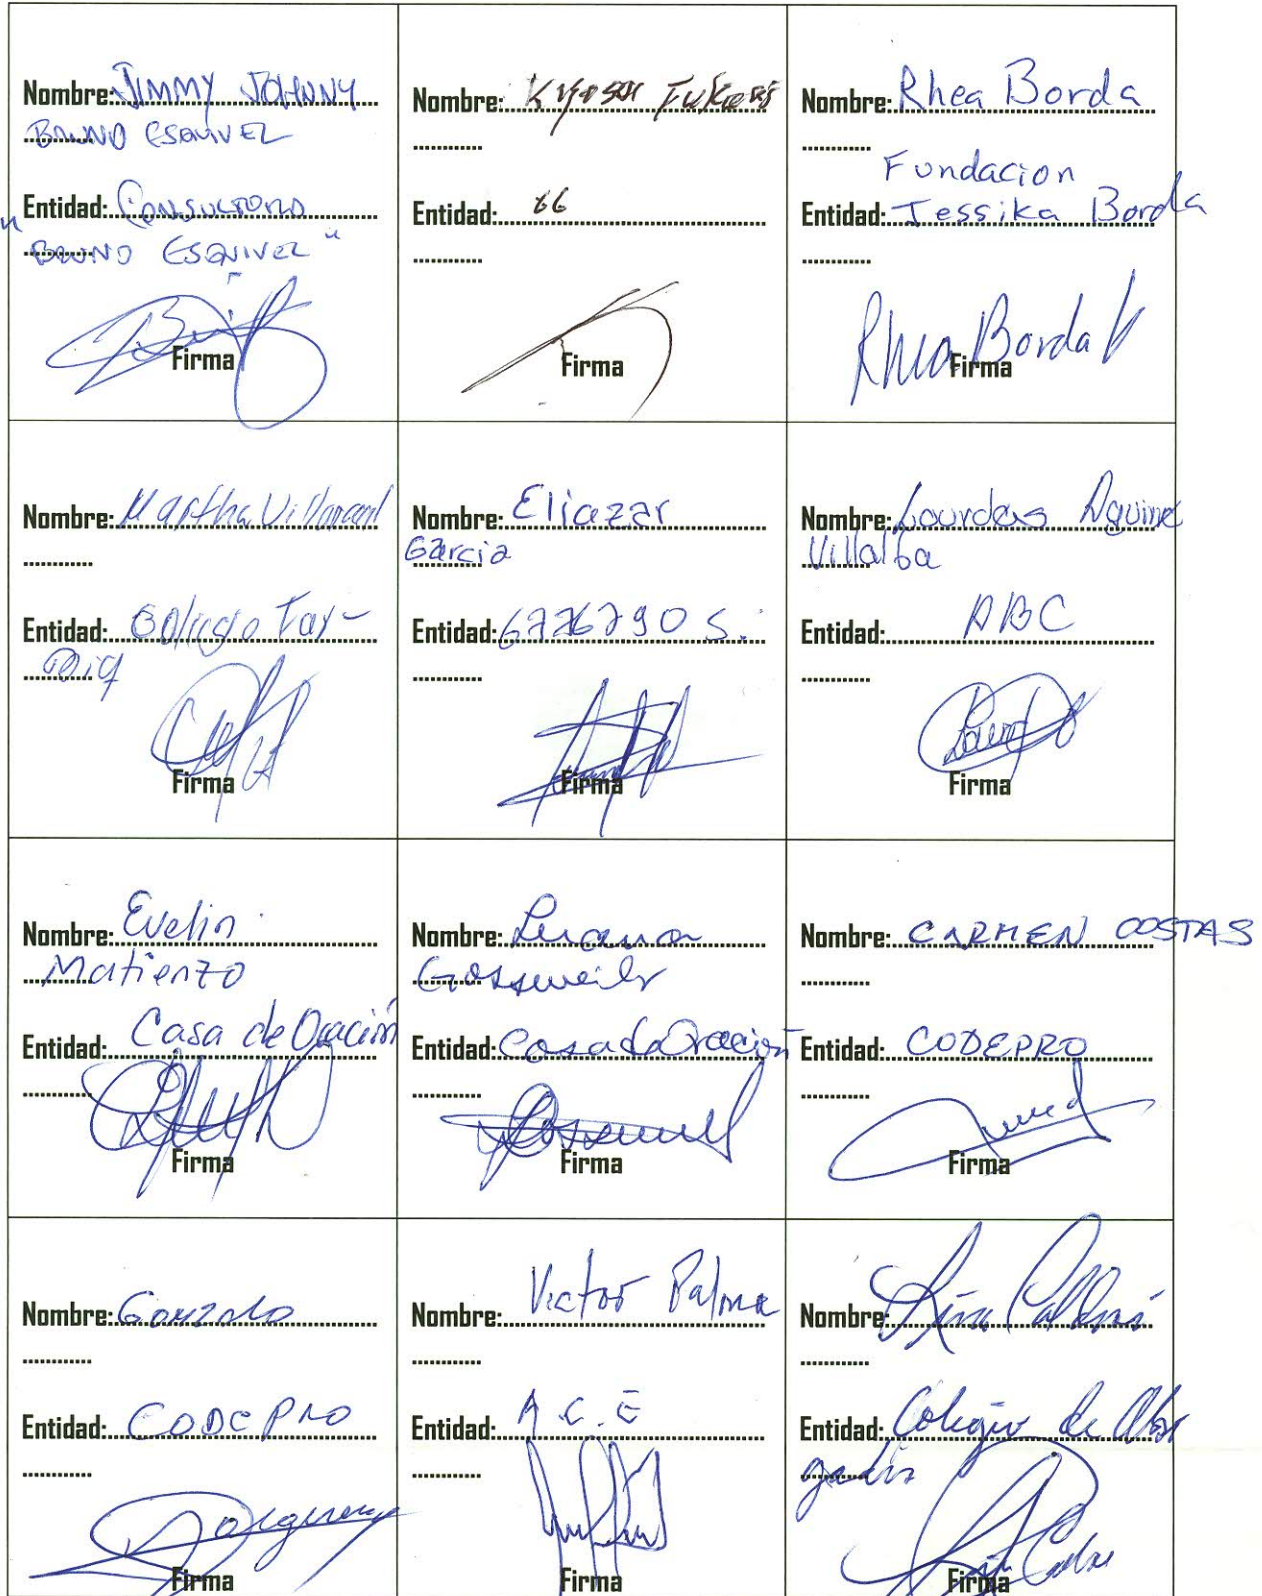 Nombre: JIMMY JOHNNY
BRUNO ESQUIVEL
Entidad: CONSULTORA
"BRUNO ESQUIVEL"
Firma
Nombre:
Entidad: 66
Firma
Nombre: Rhea Borda
Fundacion
Entidad: Jessika Borda
Rhea Borda
Firma
Nombre: Martha
Entidad:
Firma
Nombre: Eliazar
Garcia
Entidad: 6776790 S.
Firma
Nombre: Lourdes Aguirre
Villalba
Entidad: ABC
Firma
Nombre: Evelin
Matienzo
Entidad: Casa de Oración
Firma
Nombre: Luciana
Gossweiler
Entidad: Casa de Oración
Firma
Nombre: CARMEN COSTAS
Entidad: CODEPRO
Firma
Nombre: Gonzalo
Entidad: CODEPRO
Firma
Nombre: Victor Palma
Entidad: A.C.E
Firma
Nombre:
Entidad: Colegio de Abo
gados
Firma